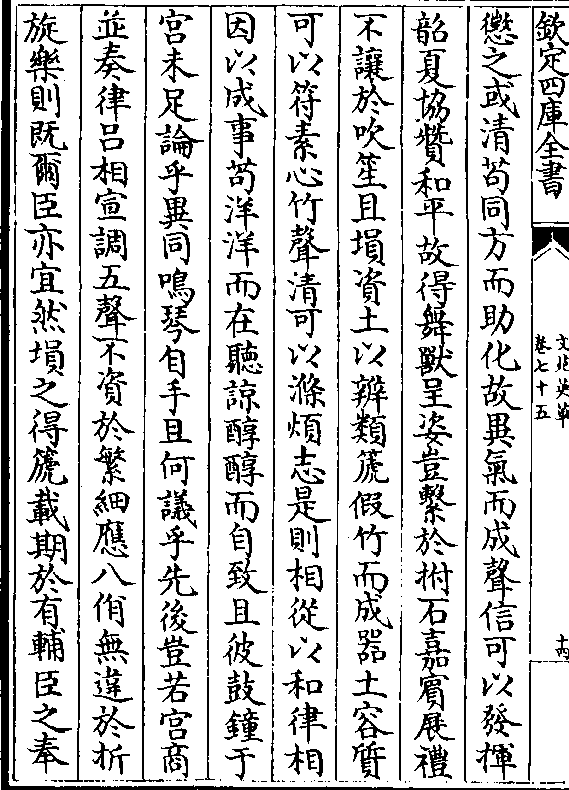 欽定四庫全書
文苑英華
卷七十五
十四
懲之或清苟同方而助化故異氣而成聲信可以發揮
韶夏協贊和平故得舞獸呈姿豈繫於拊石嘉賓展禮
不讓於吹笙且塤資土以辨類篪假竹而成器土容質
可以符素心竹聲清可以滌煩志是則相從以和律相
因以成事苟洋洋而在聽諒醇醇而自致且彼鼓鐘于
宮未足論乎異同鳴琴自手且何議乎先後豈若宮商
並奏律呂相宣調五聲不資於繁細應八佾無違於折
旋樂則既爾臣亦宜然塤之得篪載期於有輔臣之奉